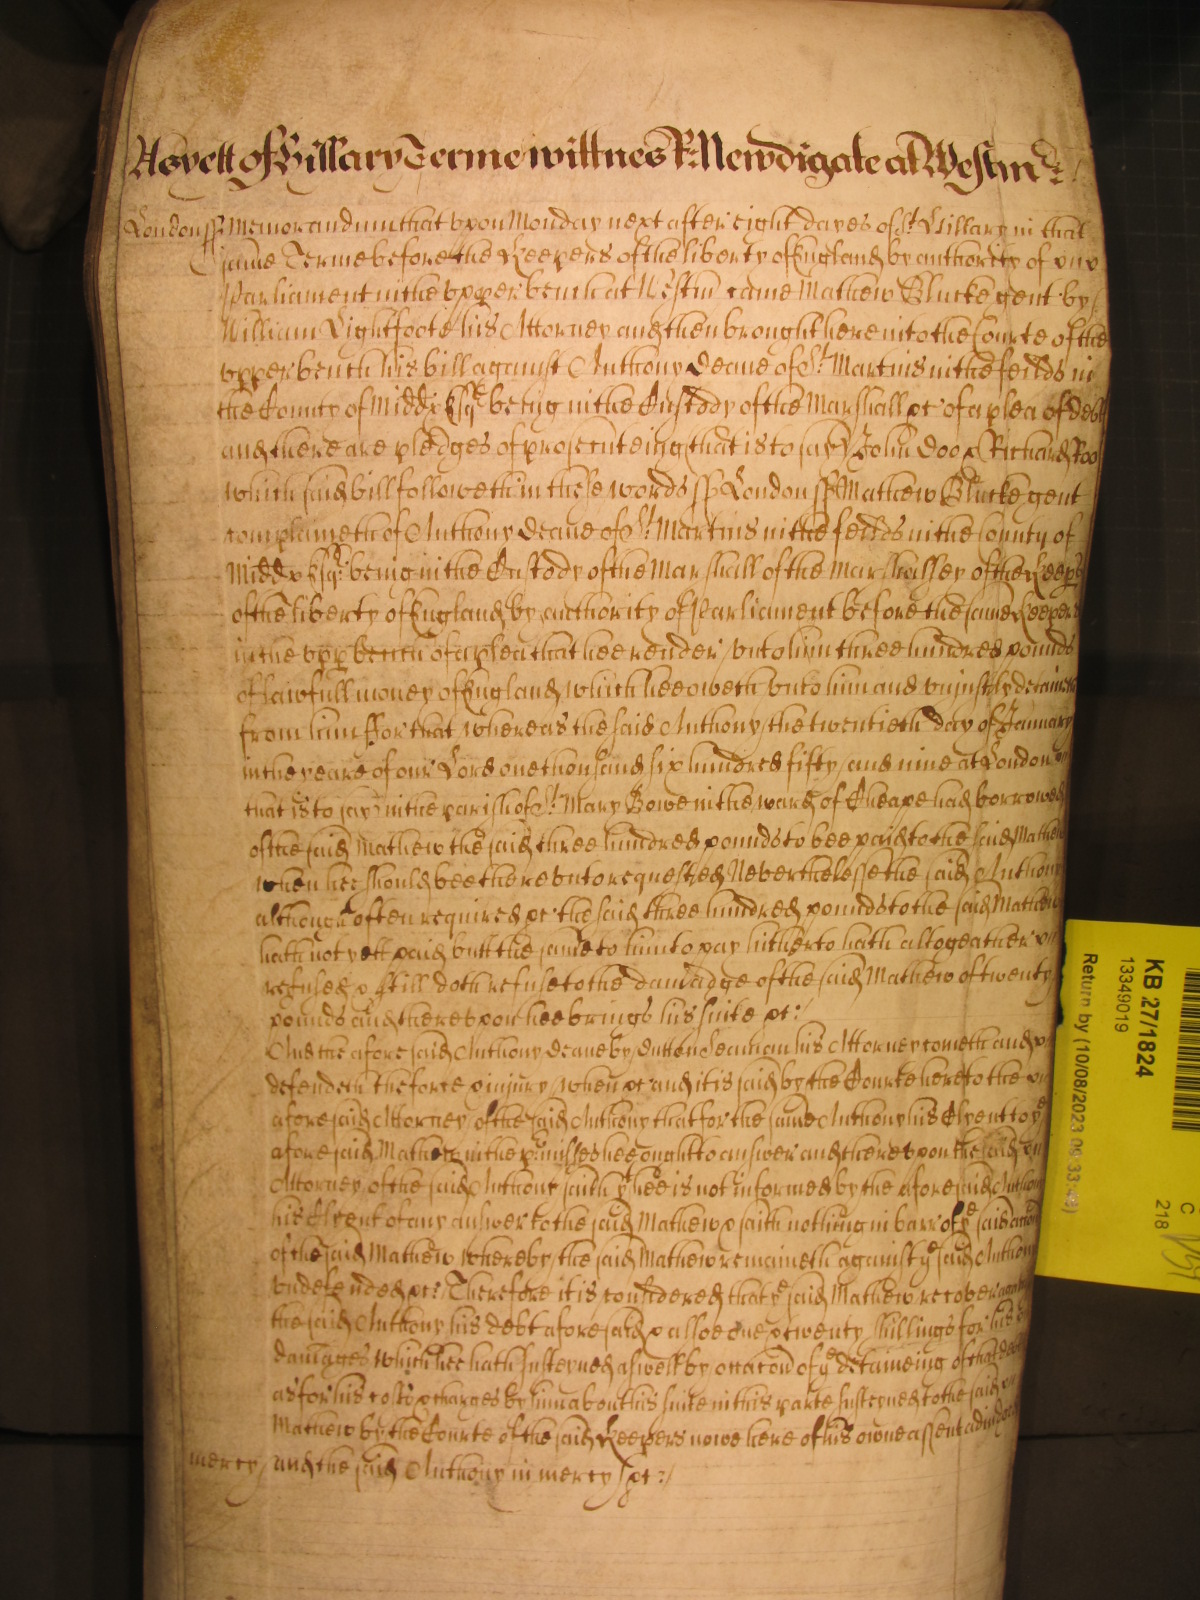 As yett of Hillary Terme wittnes R: Newdigate at Westmr
London ss Memorandum that vpon Monday next after eight dayes of St Hillary in that
same Terme before the Keepers of the liberty of England by authority of
Parliament in the vpper bench at Westm came Mathew Blucke gent by
William Lightfoote his Attorney and then brought here into the Courte of the
vpper bench his bill against Anthony Deane of St Martins in the feilds in
the County of Middx Esqr being in the Custody of the Marshall &c of a plea of debt
and there are pledges of prosecuteing that is to say John Doo & Richard Roo
which said bill followeth in these words ss London ss Mathew Blucke gent
complaineth of Anthony Deane of St Martins in the feilds in the County of
Middx Esqr being in the Custody of the Marshall of the Marshalsey of the Keeps
of the liberty of England by authority of Parliament before the same Keepers
in the vpp bench of a plea that hee render vnto him three hundred pounds
of lawfull money of England which hee oweth vnto him and vniustly detaineth
from him ffor that whereas the said Anthony the twentieth day of January
in the yeare of our Lord one thousand six hundred fifty and nine at London
that is to say in the parish of St Mary Bowe in the ward of Cheape had borrowed
of the said Mathew the said three hundred pounds to bee paid to the said Mathew
when hee should bee therevnto requested Neverthelesse the said Anthony
although often required &c the said three hundred pounds to the said Mathew
hath not yett paid butt the same to him to pay hitherto hath altogeather
refused & still doth refuse to the damadge of the said Mathew of twenty
pounds and therevpon hee brings his suite &c:
And the aforesaid Anthony Deane by Dutton Seaman his Attorney cometh and
defendeth the force & iniury when &c and it is said by the Courte here to the
aforesaid Attorney of the said Anthony that for the same Anthony his Clyent to ye
aforesaid Mathew in the p'misses hee ought to answer and therevpon the said
Attorney of the said Anthony saith yt hee is not informed by the aforesaid Anthony
his Clyent of any answer to the said Mathew & saith nothing in barr of ye said accon
of the said Mathew whereby the said Mathew remaineth against ye said Anthony
vndefended &c: Therefore it is considered that ye said Mathew recover against
the said Anthony his debt aforesaid & alsoe one & twenty shillings for his
damages which hee hath susteyned aswell by occacon of ye detaineing of that debt
as for his costs & charges by him about his suite in this parte susteyned to the said
Mathew by the Courte of the said Keepers nowe here of his owne assent adiudged
mercy and the said Anthony in mercy &c:
KB 27/1824
13349019
Return by (10/08/2023 09:33:43)
C
218